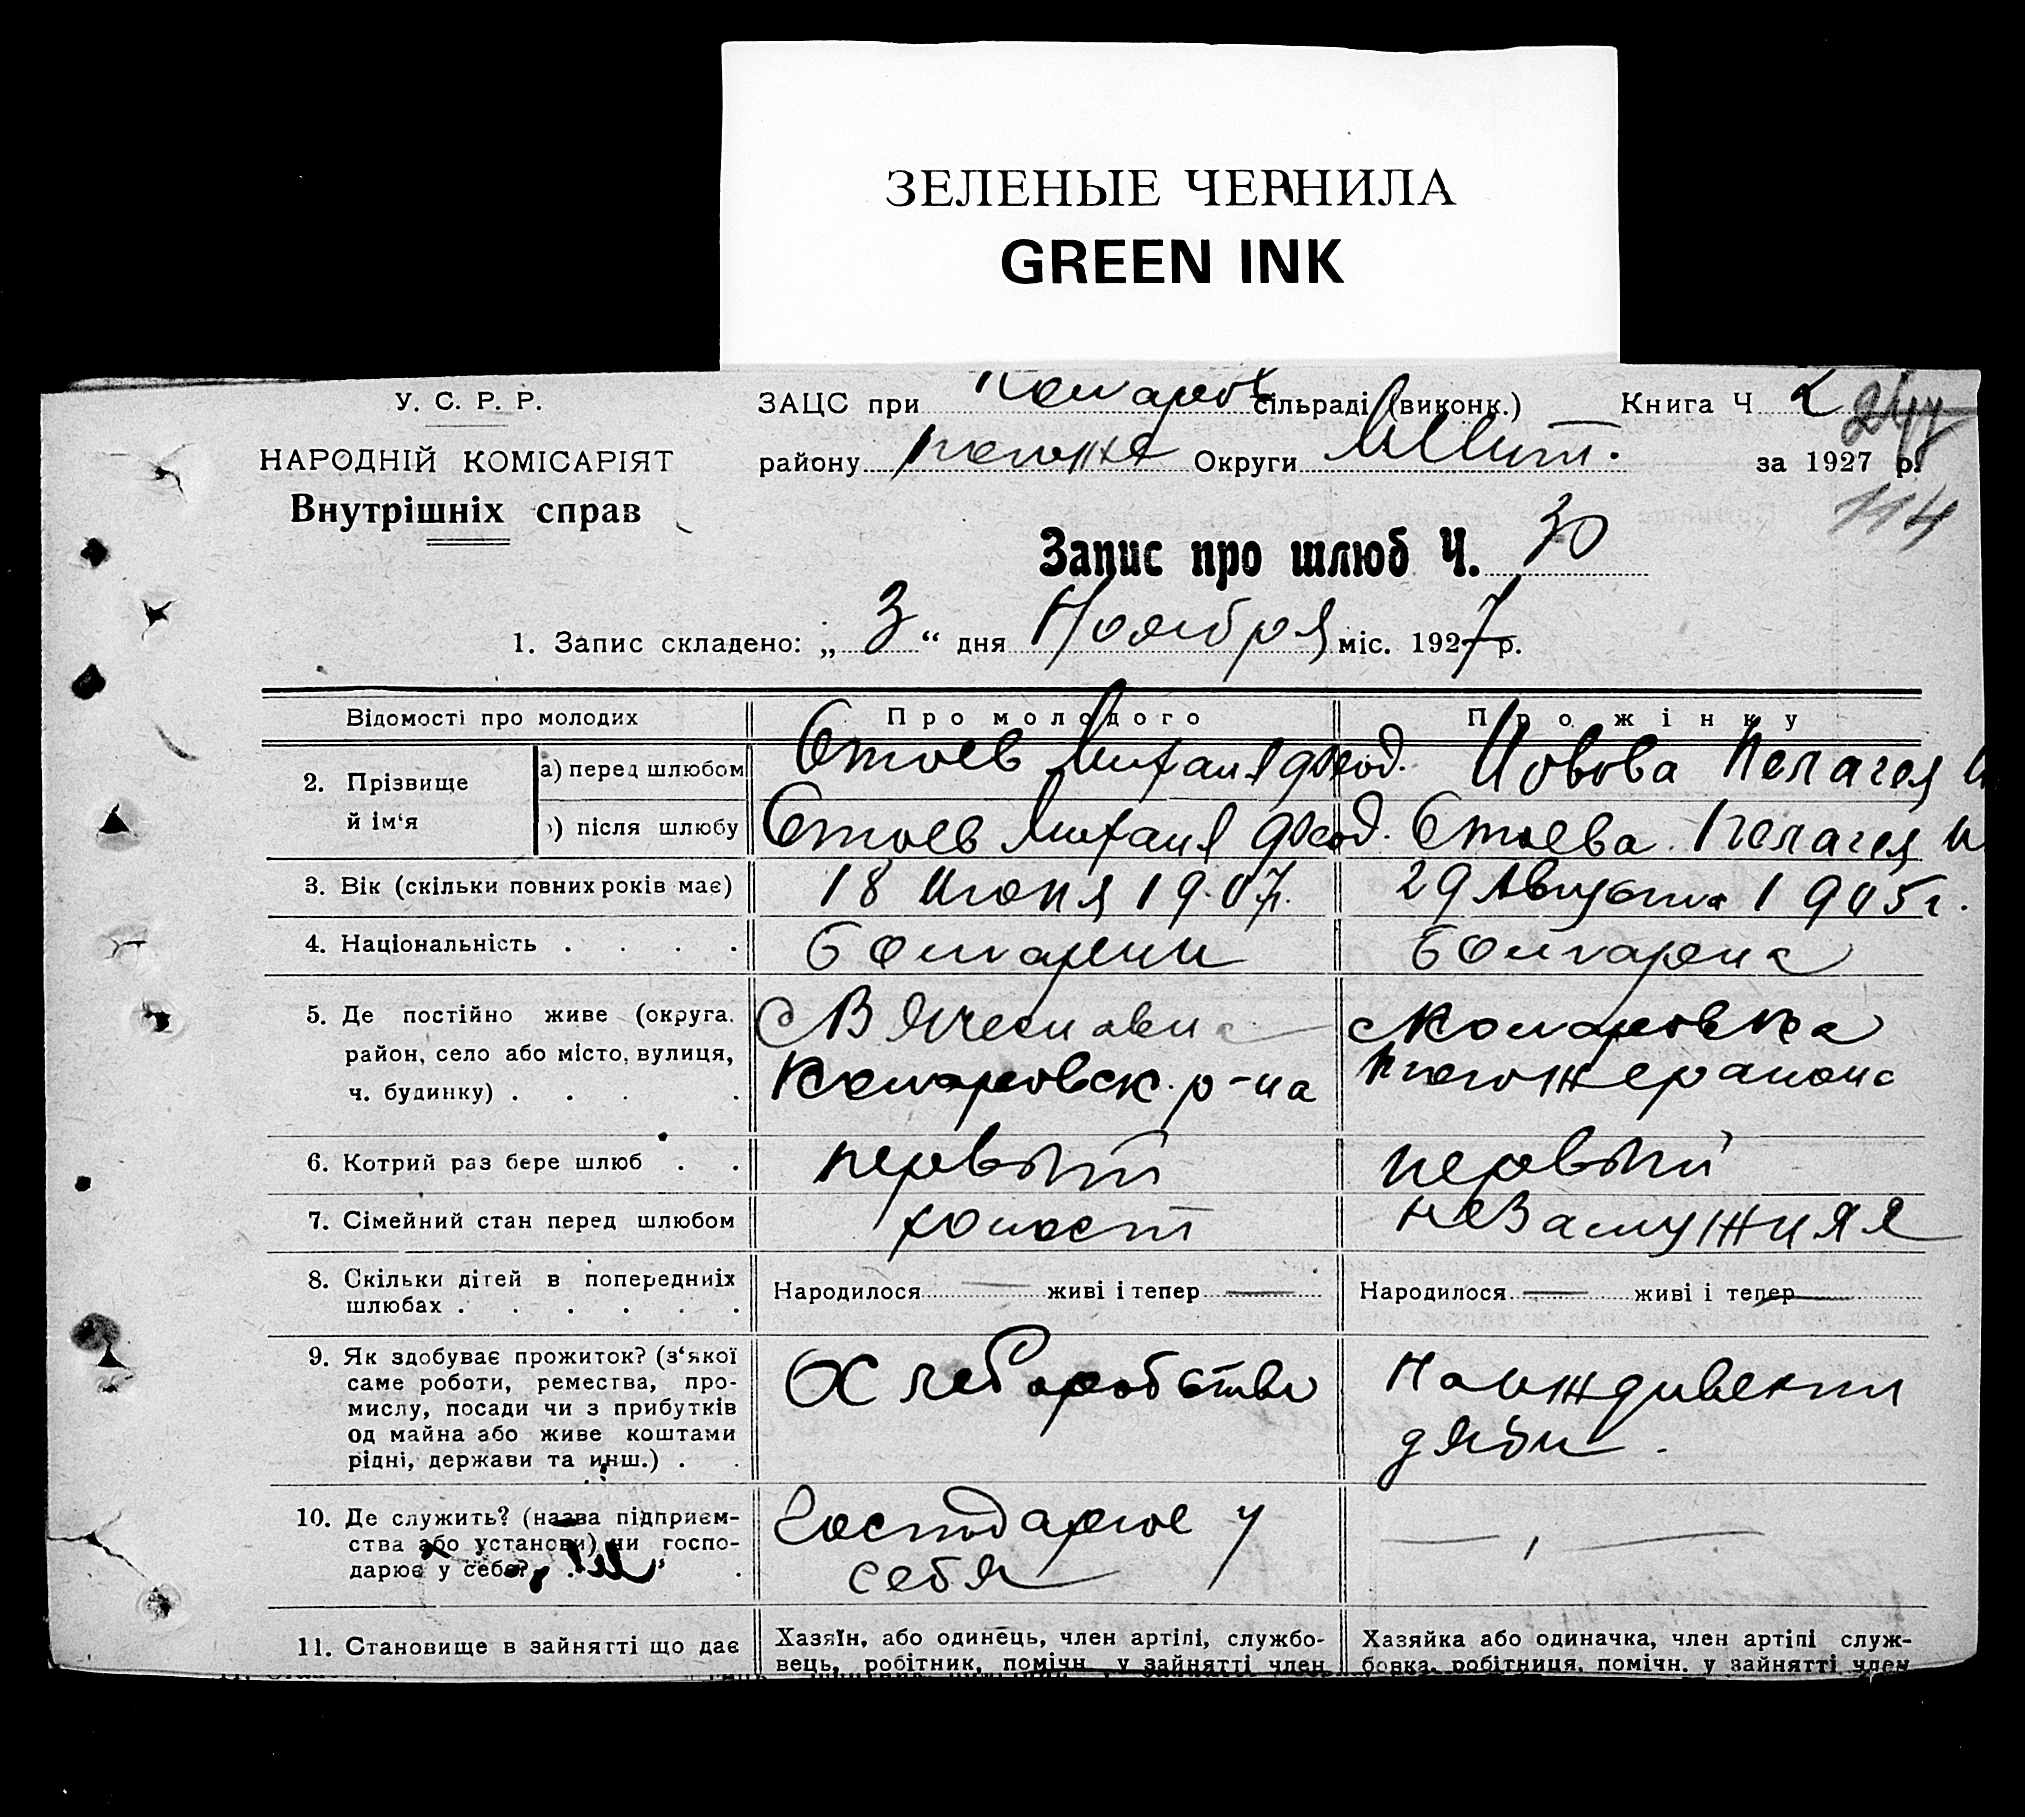 ЗЕЛЕНЫЕ ЧЕРНИЛА
GREEN INK
У. С. Р. Р.
НАРОДНІЙ КОМІСАРІЯТ
Внутрішніх справ
ЗАЦС при Комаров сільраді (виконк.) Книга Ч 2
району Округи за 1927 р.
114
Запис про шлюб Ч. 30
1. Запис складено: „ 3 “ дня Ноября міс. 1927 р.
Відомості про молодих Про молодого Про жінку
2. Прізвище й ім‘я
а) перед шлюбом Стоев Михаил Феод. Йовова Пелагея И
б) після шлюбу Стоев Михаил Феод. Стоева Пелагея И
3. Вік (скільки повних років має) 18 Июня 1907. 29 Августа 1905 г.
4. Національність . . . . Болгарин Болгарка
5. Де постійно живе (округа, район, село або місто, вулиця, ч. будинку) . . . .
с Вячеславка
Комаровск. р-на
с Комаровка
района
6. Котрий раз бере шлюб . . первый первый
7. Сімейний стан перед шлюбом холост незамужняя
8. Скільки дітей в попередниіх шлюбах . . . . . .
Народилося — живі і тепер — Народилося — живі і тепер —
9. Як здобуває прожиток? (з‘якої
саме роботи, ремества, про-
мислу, посади чи з прибутків
од майна або живе коштами
рідні, держави та инш.) . .
Хлеборобство
На иждивении
дяди.
10. Де служить? (назва підприєм-
ства або установи) чи госпо-
дарює у себе? . .
Господарює у
себя
—,—
11. Становище в зайнятті що дає
Хазяїн, або одинець, член артілі, службо-
вець, робітник, помічн. у зайнятті член
Хазяйка або одиначка, член артілі служ-
бовка, робітниця, помічн. у зайнятті член